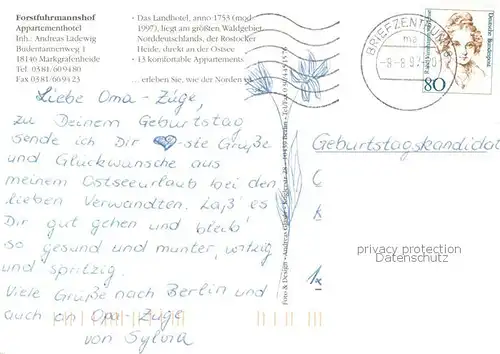 Forstfuhrmannshof
Appartementhotel
Inh.: Andreas Ladewig
Budentannenweg 1
18146 Markgrafenheide
Tel 0381/609480
Fax 0381/669423
• Das Landhotel, anno 1753 (mod.
1997), liegt am größten Waldgebiet
Norddeutschlands, der Rostocker
Heide, direkt an der Ostsee
• 13 komfortable Appartements
... erleben Sie, wie der Norden
BRIEFZENTRUM
-8-8.9
80
Deutsche Bundespost
Liebe Oma-Züge,
zu Deinem Geburtstag
sende ich Dir ♥-ste Grüße
und Glückwünsche aus
meinem Ostseeurlaub bei den
lieben Verwandten. Laß' es
Dir gut gehen und bleib'
so gesund und munter, witzig
und spritzig.
Viele Grüße nach Berlin und
auch an Opa-Züge
von Sylvia
Foto & Design • Andreas
Berlin • Tel/Fax
Geburtstagskandidat
privacy protection
Datenschutz